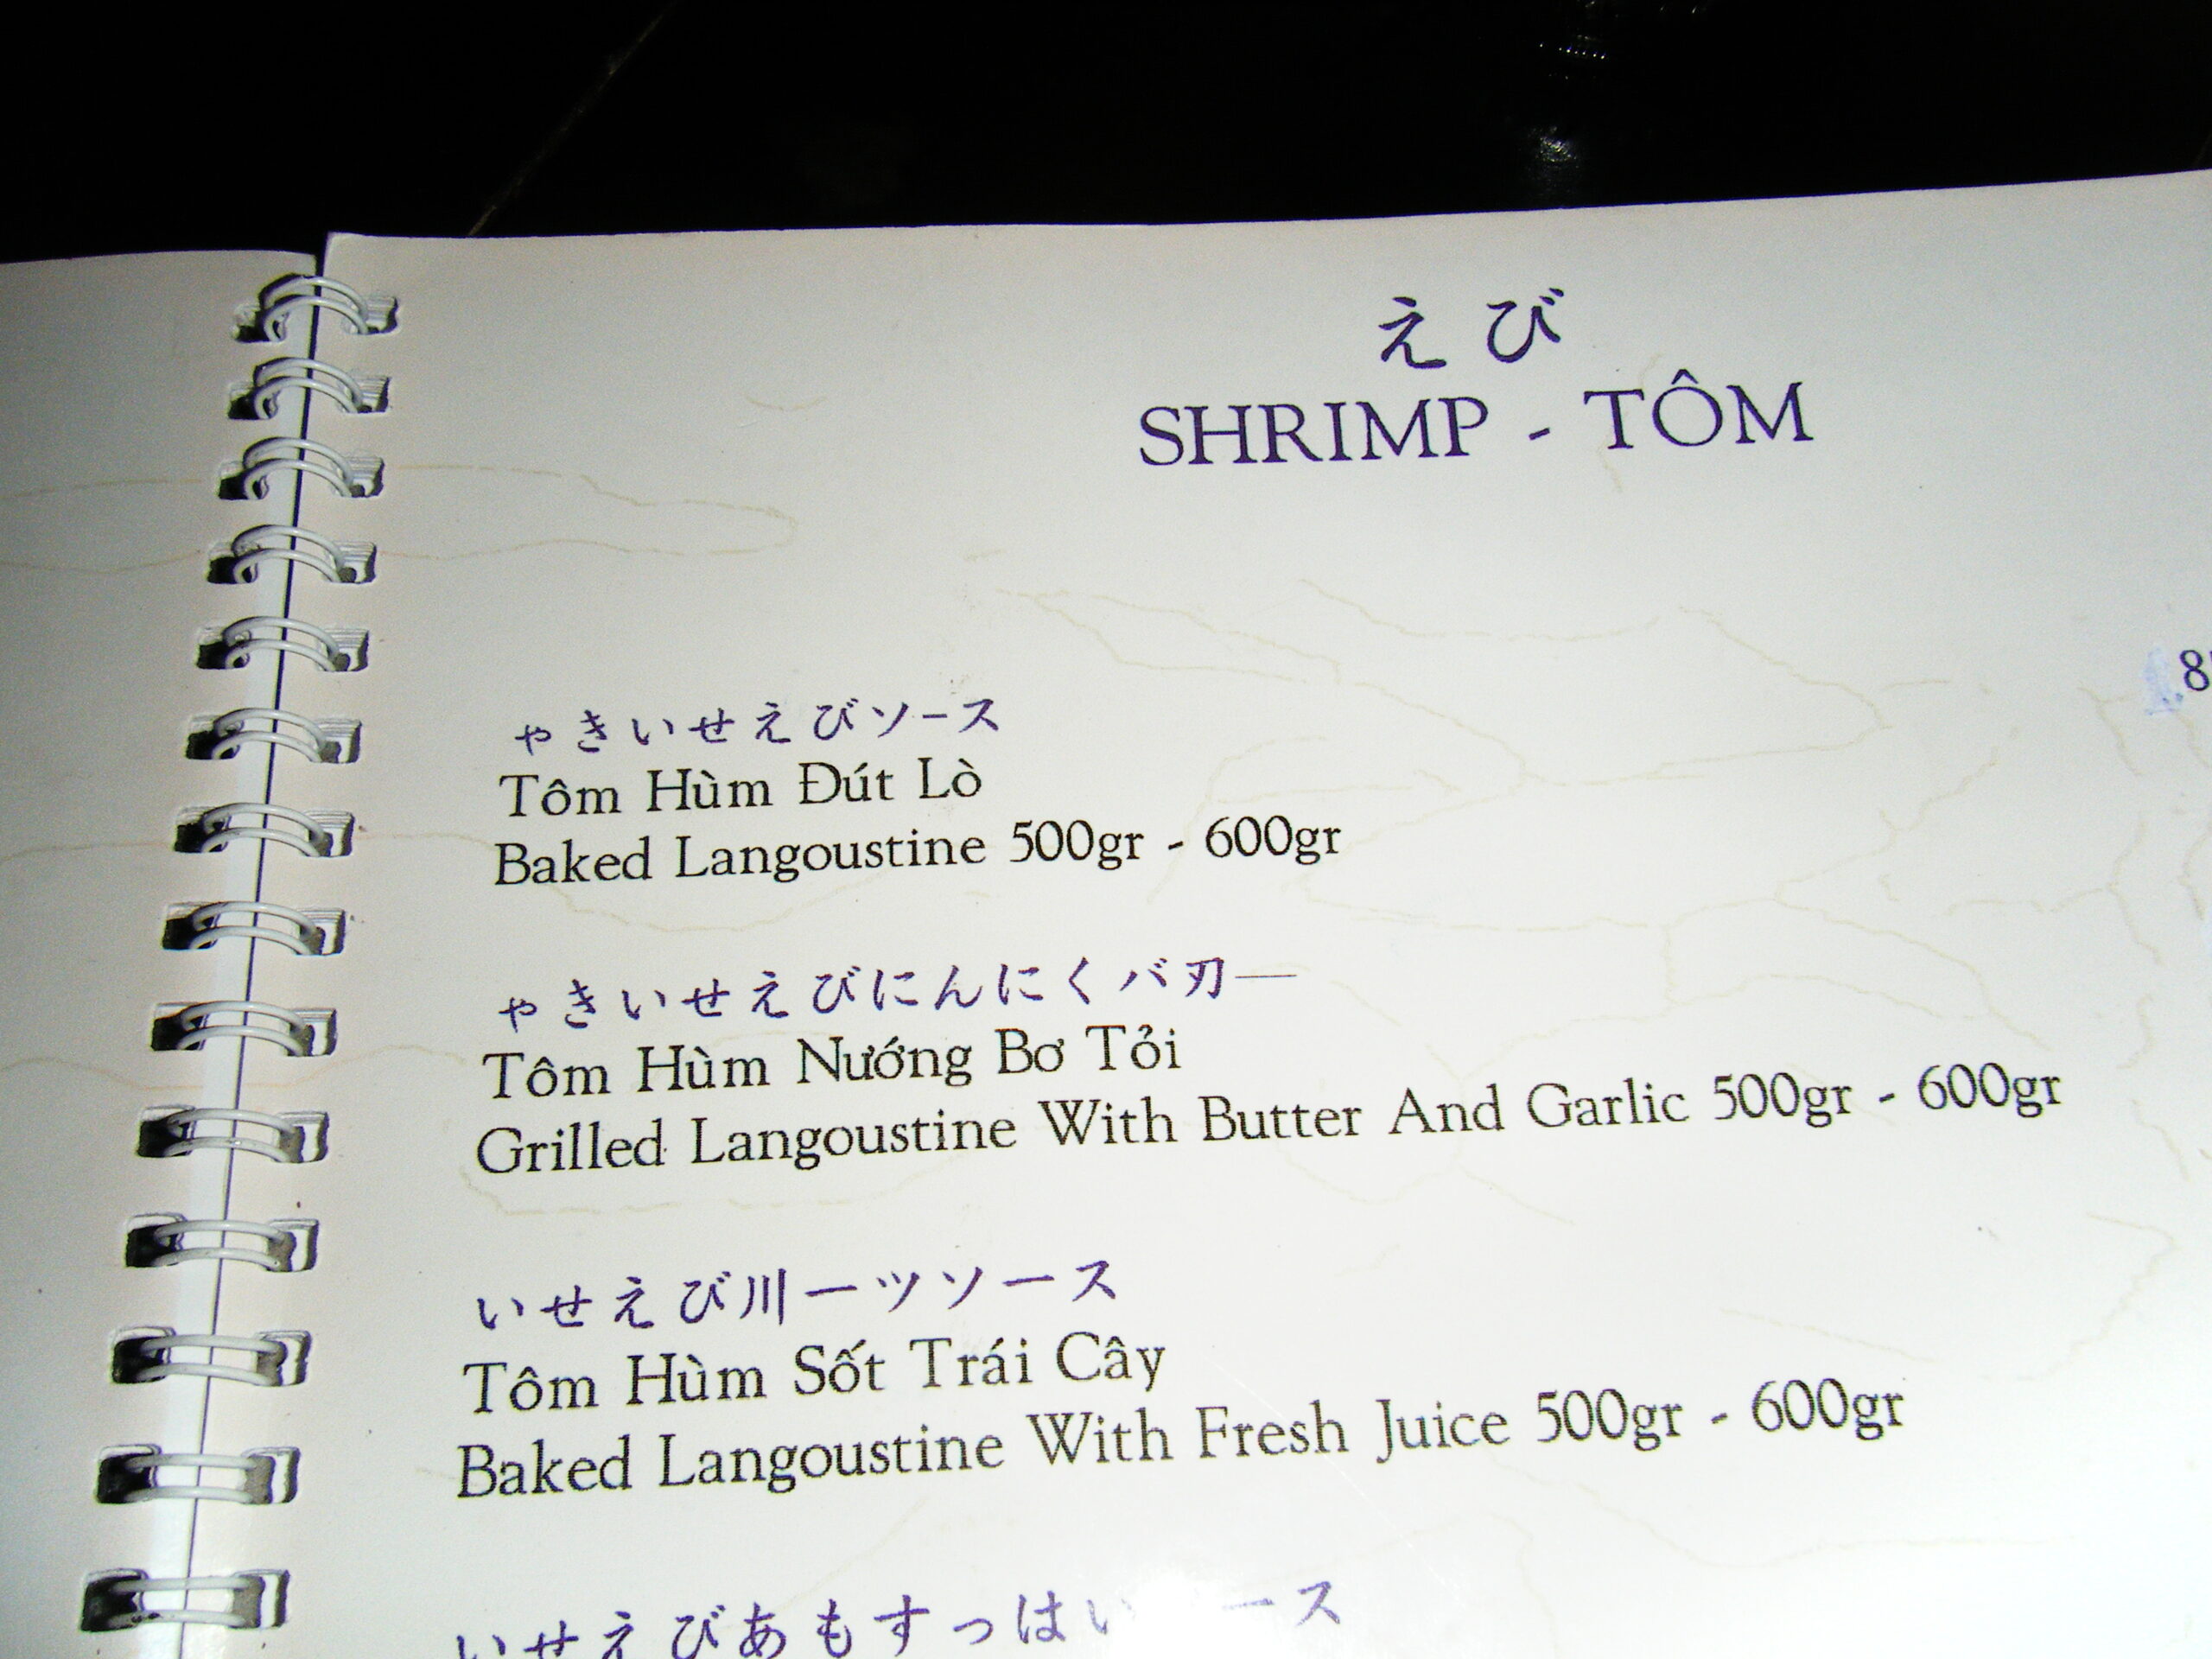 えび
SHRIMP - TÔM
8
やきいせえびソース
Tôm Hùm Đút Lò
Baked Langoustine 500gr - 600gr
やきいせえびにんにくバ刃—
Tôm Hùm Nướng Bơ Tỏi
Grilled Langoustine With Butter And Garlic 500gr - 600gr
いせえび川ーツソース
Tôm Hùm Sốt Trái Cây
Baked Langoustine With Fresh Juice 500gr - 600gr
いせえびあもすっはい ース